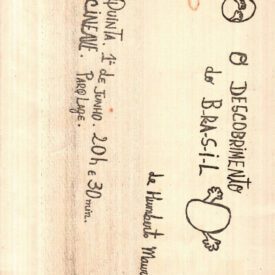 O DESCOBRIMENTO
do B-R-A-S-I-L
de Humberto Mau
QUINTA. 1º de JUNHO. 20h e 30min.
CINEAVE. PARQ LAGE.